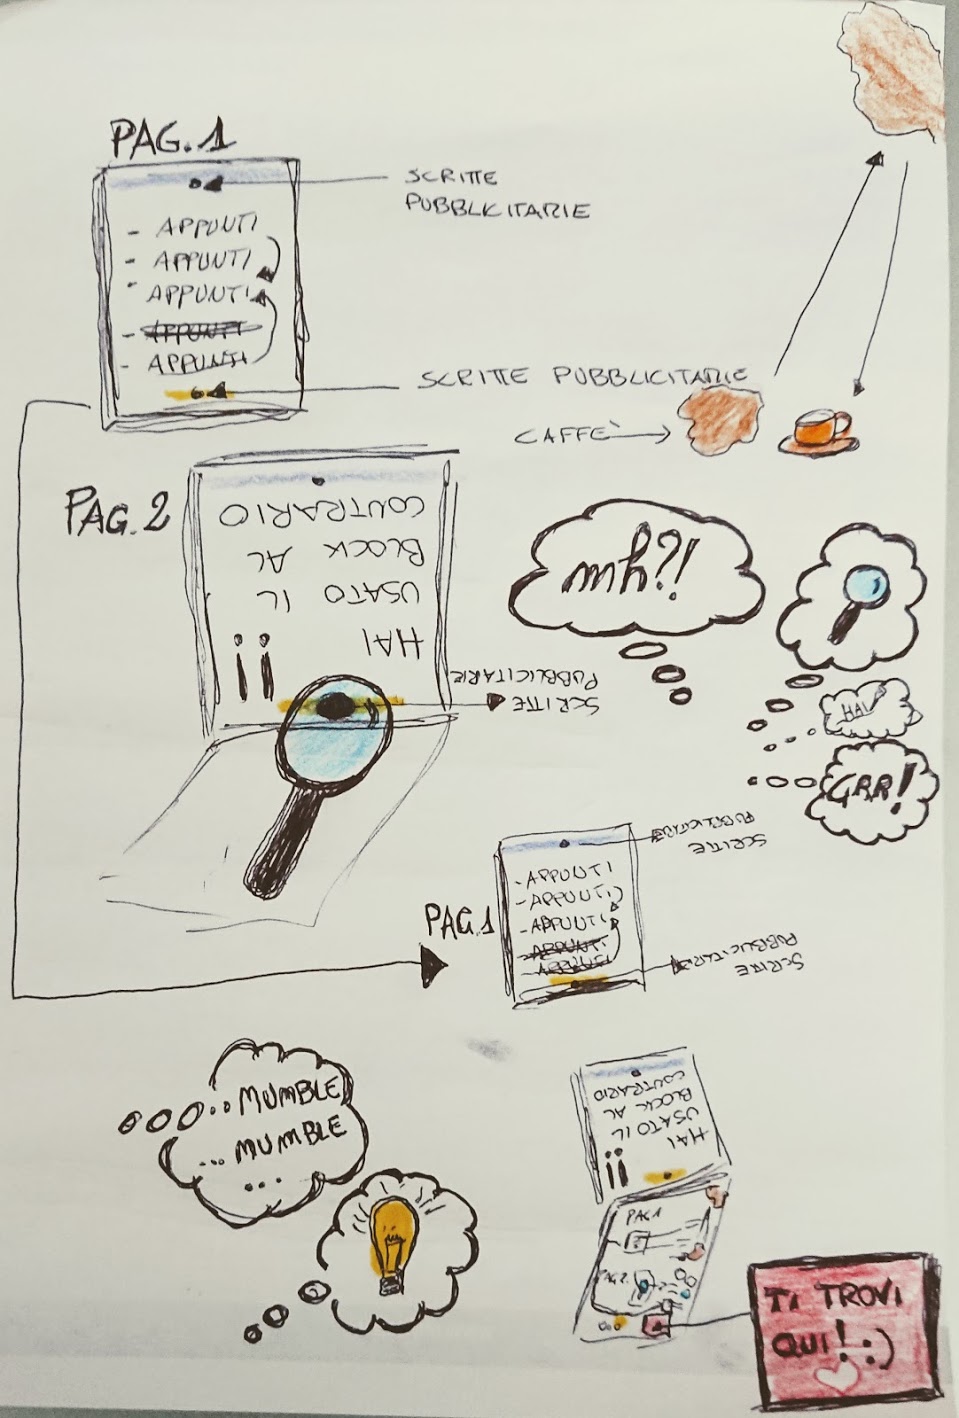 PAG.1
SCRITTE
PUBBLICITARIE
- APPUNTI
- APPUNTI
- APPUNTI
- APPUNTI
- APPUNTI
SCRITTE PUBBLICITARIE
CAFFÈ
PAG.2
HAI
USATO IL
BLOCK AL
CONTRARIO
!!
SCRITTE
PUBBLICITARIE
mh?!
HAI
GRR!
PAG.1
- APPUNTI
- APPUNTI
- APPUNTI
- APPUNTI
- APPUNTI
SCRITTE
PUBBLICITARIE
SCRITTE
PUBBLICITARIE
... MUMBLE
... MUMBLE
...
HAI
USATO IL
BLOCK AL
CONTRARIO
!!
PAG.1
PAG.2
TI TROVI
QUI! :)